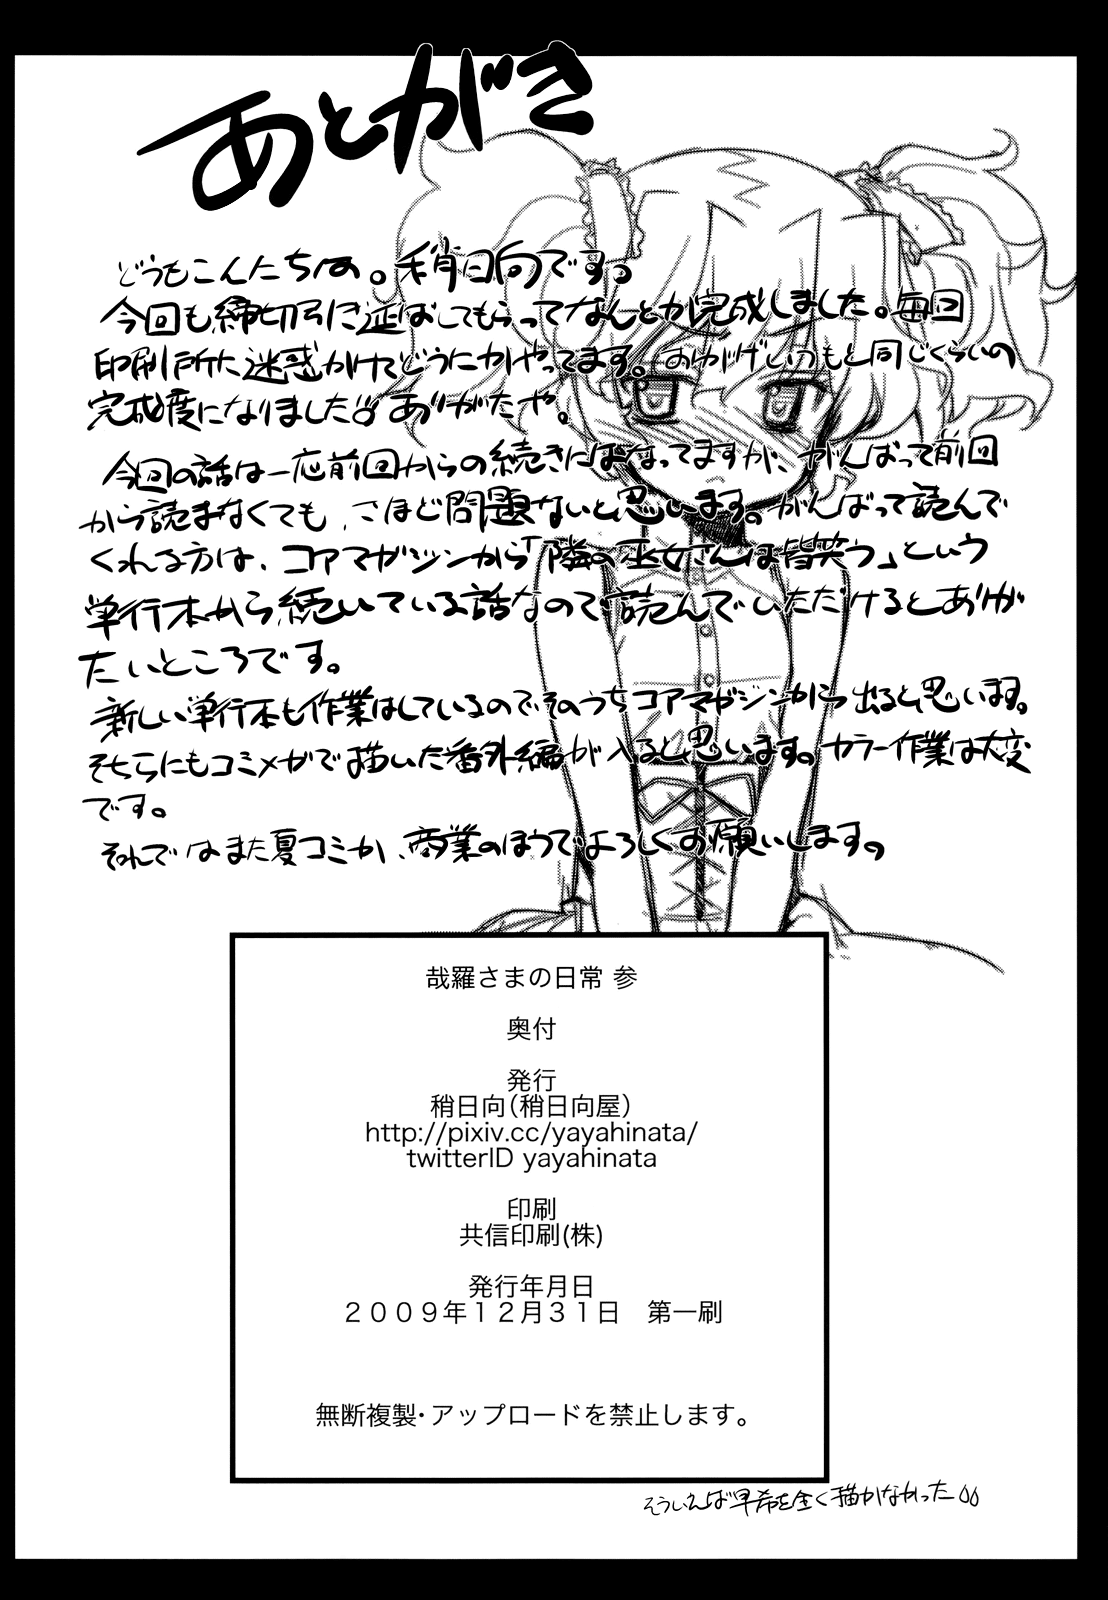 あとがき
どうもこんにちは。稍日向です。
今回も締切ﾘに延ばしてもらってなんとか完成しました。毎回
印刷所に迷惑かけてどうにかやってます。おかげでいつもと同じくらいの
完成度になりました。ありがたや。
今回の話は一応前回からの続きにはなってますが、がんばって前回
から読まなくても、さほど問題ないと思います。がんばって読んで
くれる方は、コアマガジンから「隣の巫女さんは皆笑う」という
単行本から続いている話なので読んでいただけるとありが
たいところです。
新しい単行本も作業はしているのでそのうちコアマガジンから出ると思います。
そちらにもコミメガで描いた番外編が入ると思います。カラー作業は大変
です。
それではまた夏コミか、商業のほうでよろしくお願いします。
哉羅さまの日常 参
奥付
発行
稍日向(稍日向屋)
http://pixiv.cc/yayahinata/
twitterID yayahinata
印刷
共信印刷(株)
発行年月日
２００９年１２月３１日　第一刷
無断複製・アップロードを禁止します。
そういえば早希を全く描かなかった